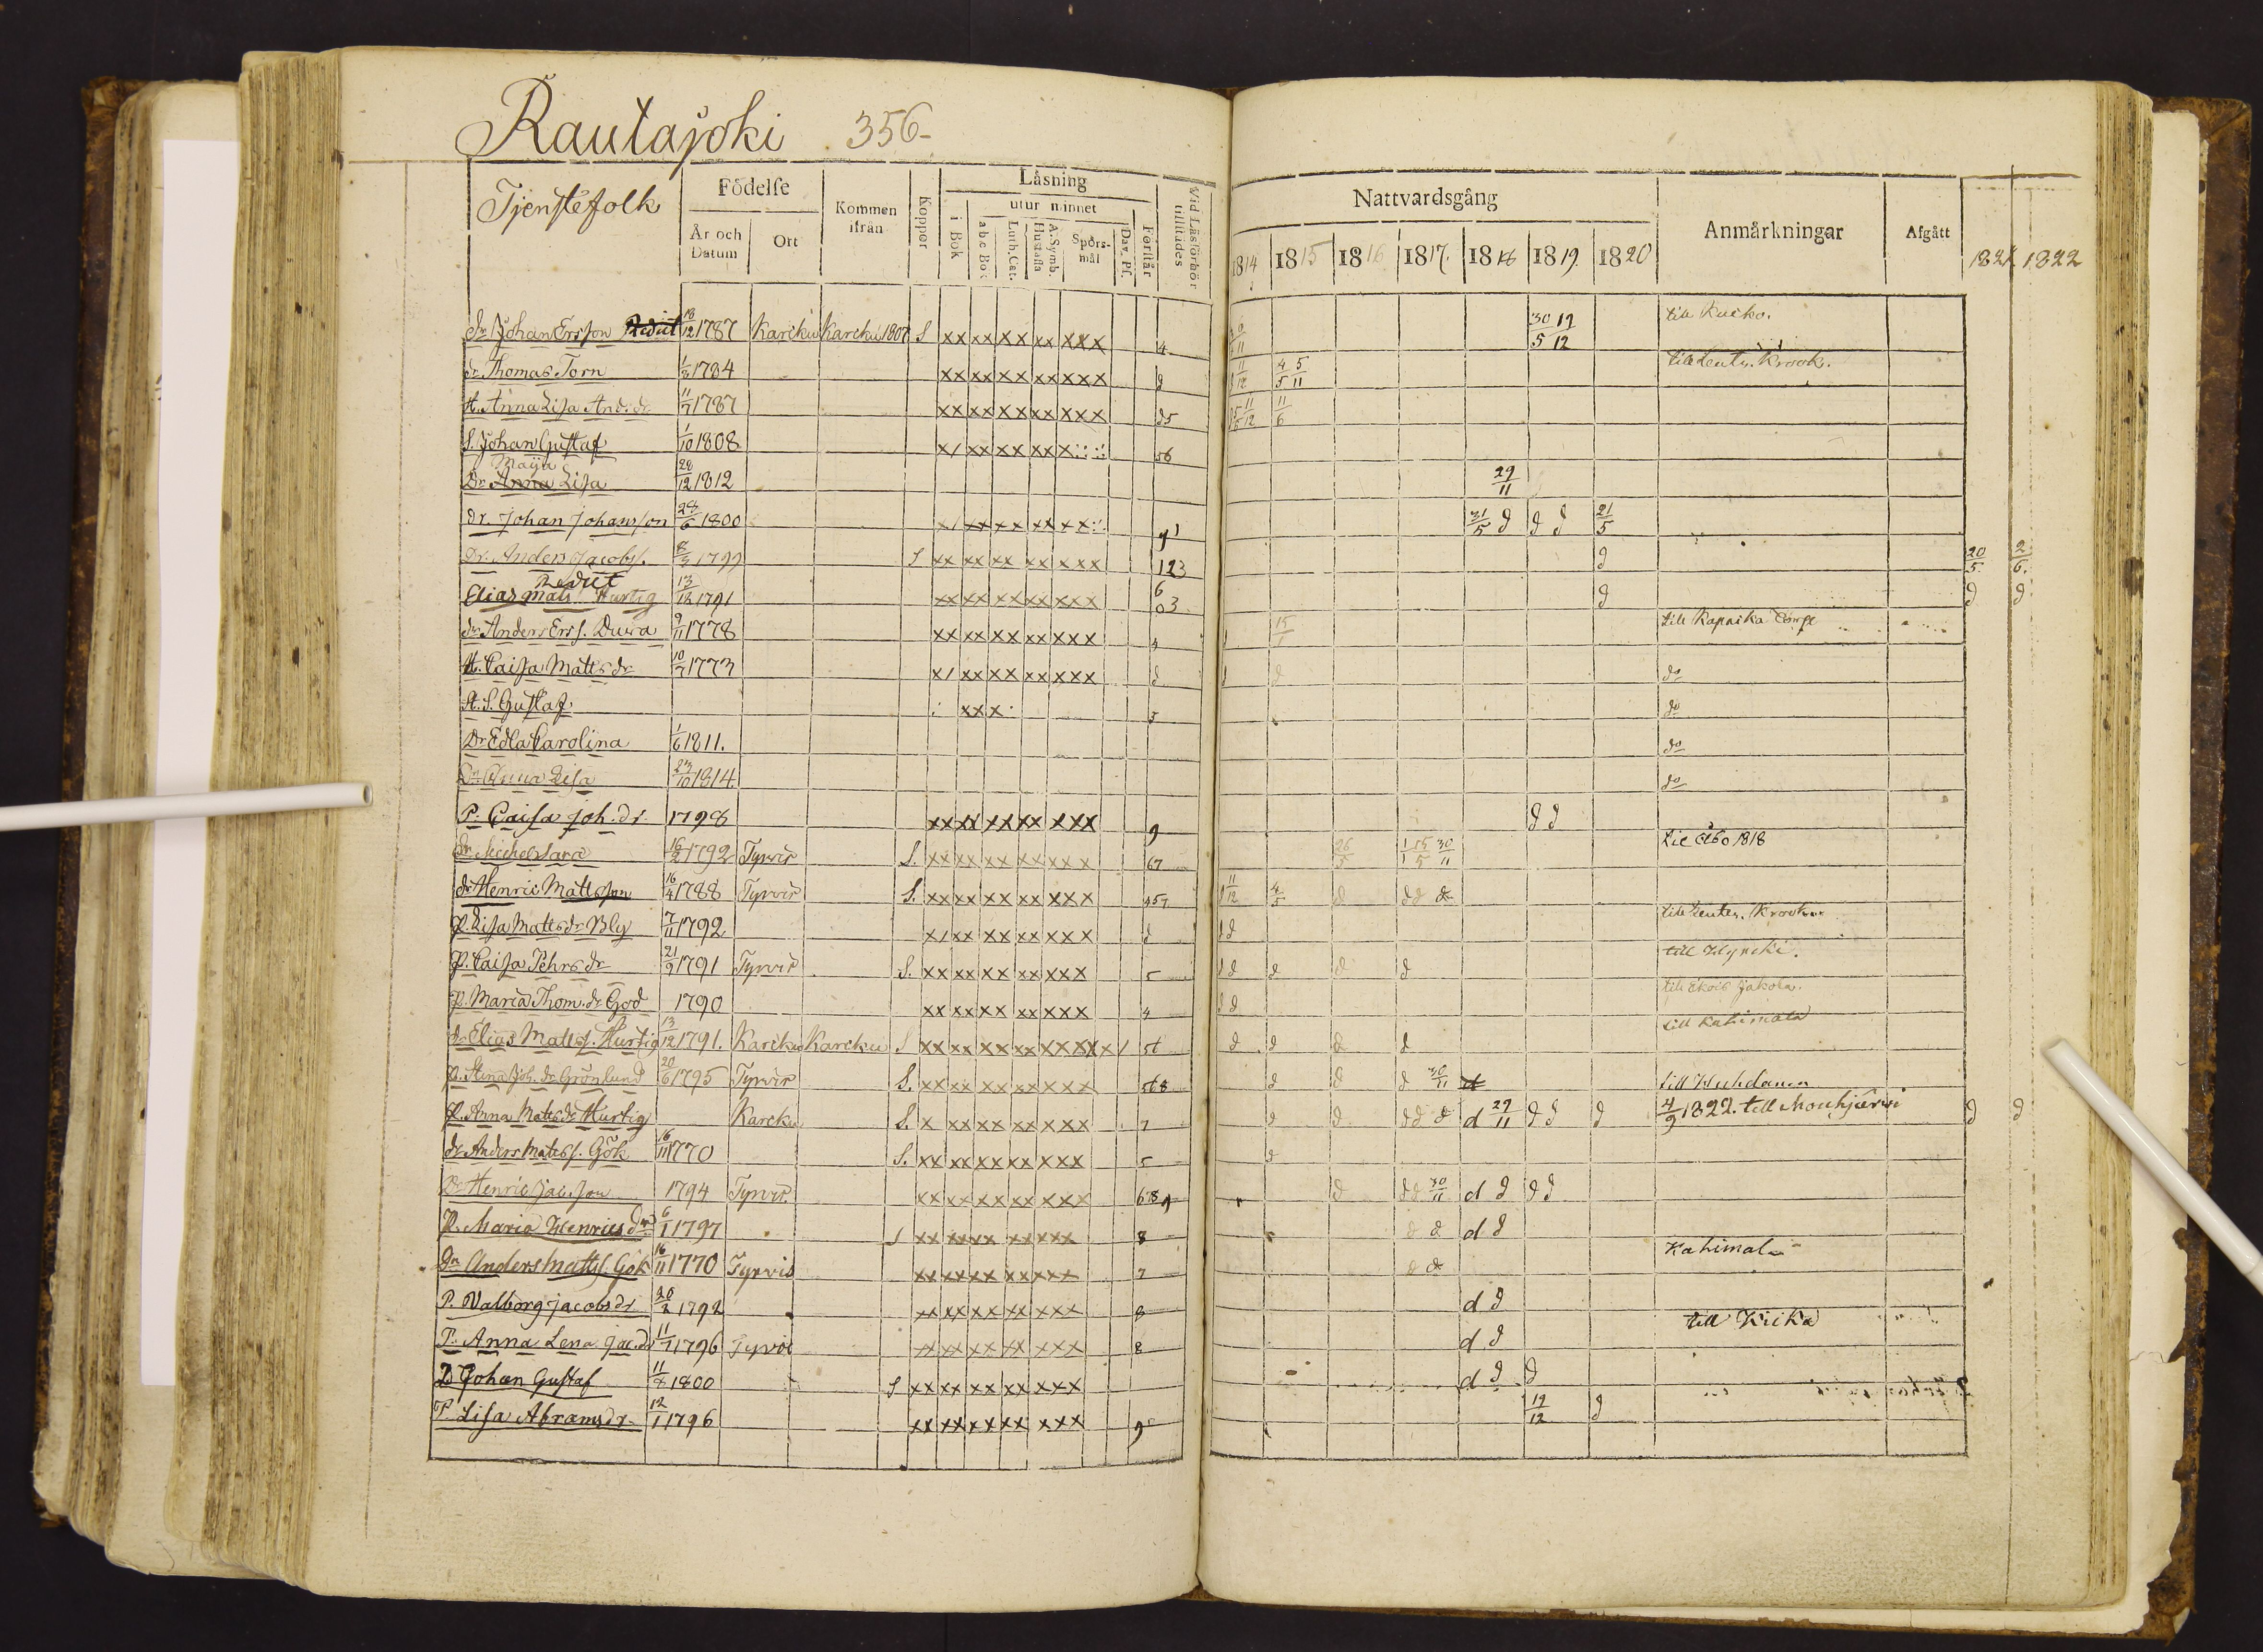 Rautajoki 356-
Tjenstefolk Födelse Kommen ifrån Koppor Läsning Vid Läsförhör tilltädes Nattvardsgång Anmärkningar Afgått
År och Datum Ort i Bok utur minnet Förstår
abc Bok Luth. Cat. A. Symb. Hustafla Spörsmål Dav. Ps.
1814 1815 1816 1817. 1818 1819. 1820 1821 1822
dr Johan Ersson 18/12 1787 Karcku Karcku 1807 S xx xx xx xx xxx 4 30/5 19/12 till Kucko.
dr Thomas Torn 1784 xx xx xx xx xxx d 11/12 4/5 5/11 till Leutn. Krook.
H. Anna Lisa And. dr 11/7 1787 xx xx xx xx xxx d5 11/12 11/6
S. Johan Gustaf 1/10 1808 x/ xx xx xx x 56
Maija
Dr Anna Lisa 28/12 1812 29/11
dr. Johan Johansson 28/6 1800 x/ xx xx xx xx 31/5 d d d 21/5
Dr. Anders Jacobs. 8/3 1799 S xx xx xx xx xxx 123 d 20/5 2/6.
Redut
Elias Mats Hurtig 13/12 1791 xx xx xx xx xxx d d d
dr Anders Ers. Duwa 9/11 1778 xx xx xx xx xxx 15/1 till Kapaika
H. Caisa Matts dr 10/7 1773 x/ xx xx xx xxx d d do
H. S. Gustaf xxx 5 do
Dr Edla Carolina 1/6 1811. do
Dr Anna Lisa 23/10 1814 do
P. Caisa Joh. dr 1798 xx xx xx xx xxx 9 d d
16/2 1792 Tyrvis S. xx xx xx xx xxx 67 26/5 15/5 30/11 till Åbo 1818
dr Henric Mattsson 16/4 1788 Tyrvis S. xx xx xx xx xxx 457 11/12 4/5 d d d d
P. Lisa Matts dr Bly 7/11 1792 x/ xx xx xx xxx d d till Leutn. Krook
P. Caisa Pehrs dr 21/9 1791 Tyrvis S. xx xx xx xx xxx 5 d d d d till Hyrcki.
P. Maria Thom. dr God 1790 xx xx xx xx xxx 4 d till Ekois Jakola.
dr Elias Matts. Hurtig 13/12 1791. Karcku Karcku S xx xx xx xx xxxx x/ 56 d d d d till Kahimala
P. Stina Joh. dr Grönlund 20/6 1795 Tyrvis S. xx xx xx xx xxx 568 d d d 30/11 d till Huhdanen
P. Anna Matts dr Hurtig Karcku S. x xx xx xx xxx 7 d d d d d d 29/11 d d d 4/9 1822. till Mouhijärvi d d
dr Anders Matts. Gök 16/11 1770 S. xx xx xx xx xxx 5 d
Dr Henric Jacsson 1794 Tyrvis. xx xx xx xx xxx 6789 d d d 30/11 d d d d
P. Maria Henricsdr 6/1 1797 S xx xx xx xx xxx 8 d d d d
Dr Anders Matts. Gök 16/11 1770 Tyrvis xx xx xx xx xxx 7 d d Kahimala
P. Walborg Jacobsdr 20/2 1792 xx xx xx xx xxx 8 d d
P. Anna Lena Jac.dr 11/7 1796 Tyrvis xx xx xx xx xxx 8 d d till Kicka
D Johan Gustaf 11/8 1800 S xx xx xx xx xxx d d d
P Lisa Abramsdr 12/1 1796 xx xx xx xx xxx 9 19/12 d